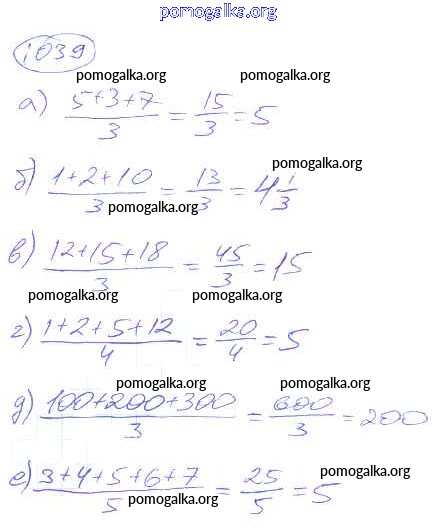 pomogalka.org
1039
pomogalka.org pomogalka.org
а) (5+3+7)/3 = 15/3 = 5
pomogalka.org
б) (1+2+10)/3 = 13/3 = 4 1/3
pomogalka.org
в) (12+15+18)/3 = 45/3 = 15
pomogalka.org pomogalka.org
г) (1+2+5+12)/4 = 20/4 = 5
pomogalka.org pomogalka.org
д) (100+200+300)/3 = 600/3 = 200
pomogalka.org
е) (3+4+5+6+7)/5 = 25/5 = 5
pomogalka.org